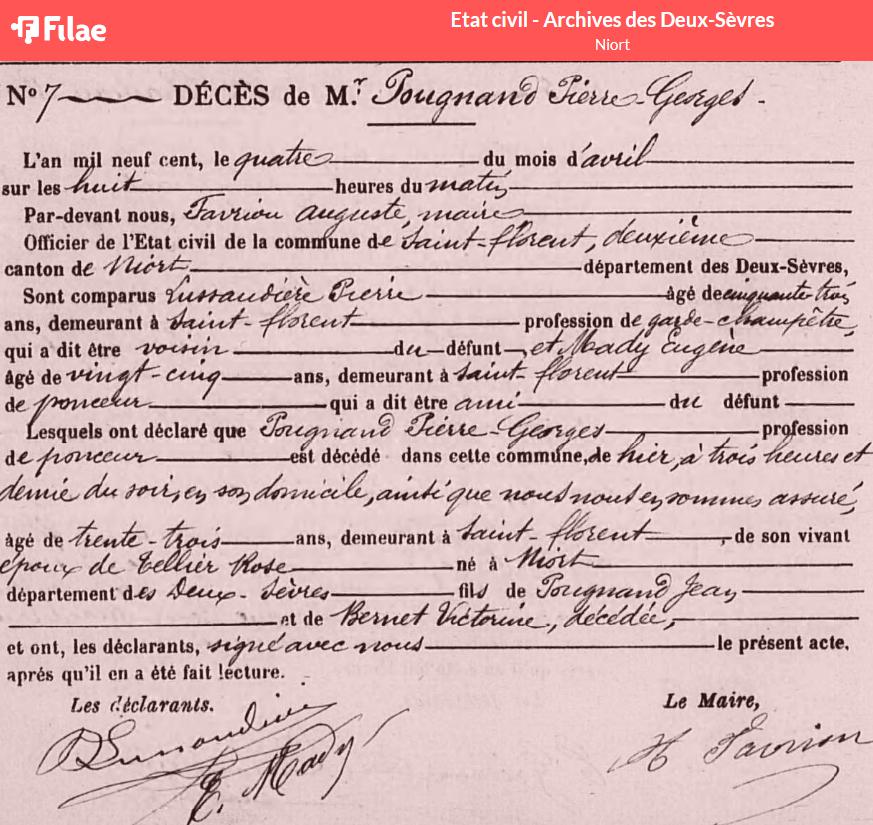 Filae
Etat civil - Archives des Deux-Sèvres
Niort
N° 7 DÉCÈS de M.r Pougnand Pierre-Georges -
L'an mil neuf cent, le quatre du mois d'avril
sur les huit heures du matin
Par-devant nous, Favriou Auguste, maire
Officier de l'Etat civil de la commune de Saint-florent, deuxième
canton de Niort département des Deux-Sèvres,
Sont comparus Lussaudière Pierre âgé de cinquante-trois
ans, demeurant à Saint-florent profession de garde-champêtre,
qui a dit être voisin du défunt, et Mady Eugène
âgé de vingt-cinq ans, demeurant à Saint-florent profession
de ponceur qui a dit être ami du défunt
Lesquels ont déclaré que Pougnand Pierre-Georges profession
de ponceur est décédé dans cette commune, de hier, à trois heures et
demie du soir, en son domicile, ainsi que nous nous en sommes assuré,
âgé de trente-trois ans, demeurant à Saint-florent, de son vivant
époux de Tellier Rose né à Niort
département des Deux-Sèvres fils de Pougnand Jean
et de Bernet Victorine, décédée,
et ont, les déclarants, signé avec nous le présent acte,
aprés qu'il en a été fait lecture.
Les déclarants. Le Maire,
E. Mady
Favriou